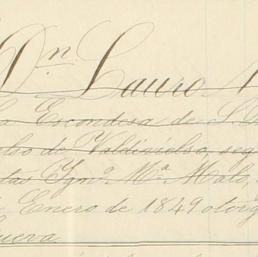 Dn. Lauro
la Escondosa de
de Valdivielso, seg
Ygno. Ma. Mato,
Enero de 1849 otorg
Cueva